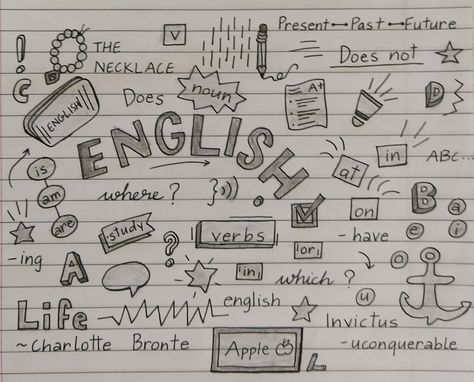 !
THE
NECKLACE
v
Present↔Past↔Future
Does not
C
D
ENGLISH
Does
noun
A+
D
ENGLISH
is
am
are
where?
}=))
at
in
ABC...
B
a
e
i
o
u
on
-have
study
?
verbs
or
-ing
A
in
which?
english
Life
~Charlotte Bronte
Invictus
-uconquerable
Apple
L